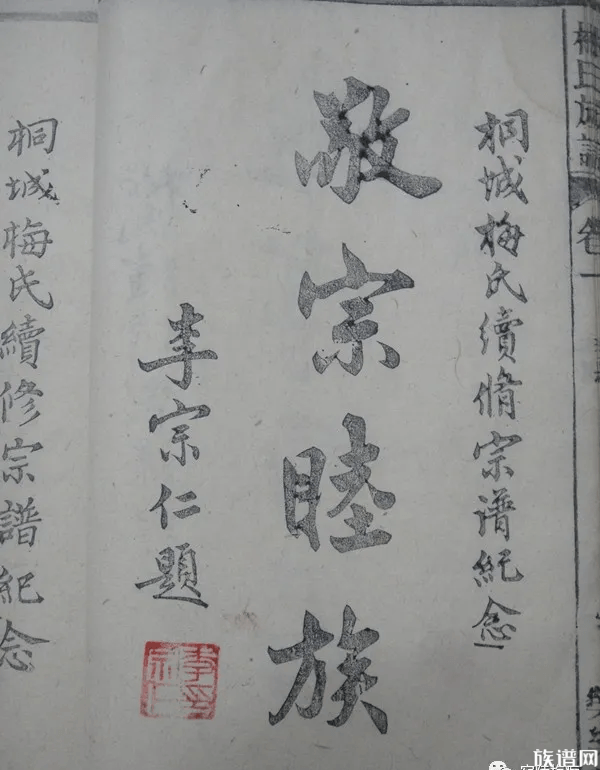 梅氏族譜
卷一
桐城梅氏續脩宗谱紀念
敬宗睦族
李宗仁題
桐城梅氏續修宗譜紀念
族谱网